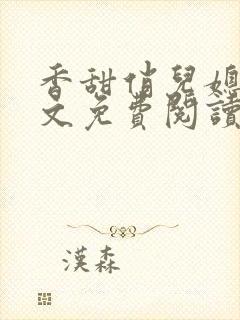 香甜俏兒媳
文免費閱讀
漢森